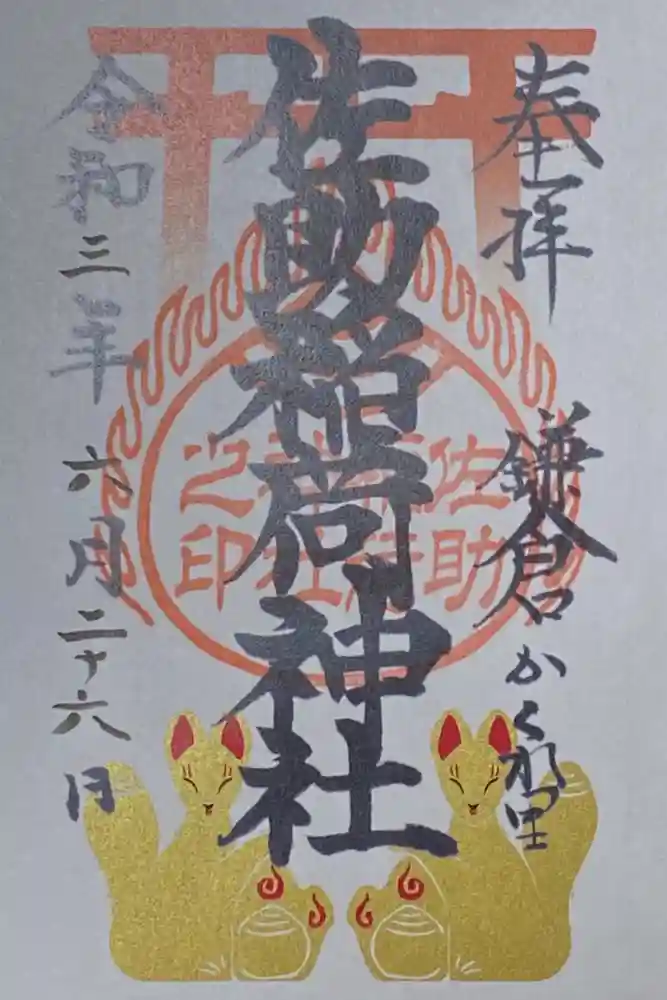 奉拝
鎌倉かくれ里
佐助稲荷神社
令和三年六月二十六日
佐助
稲荷
神社
之印